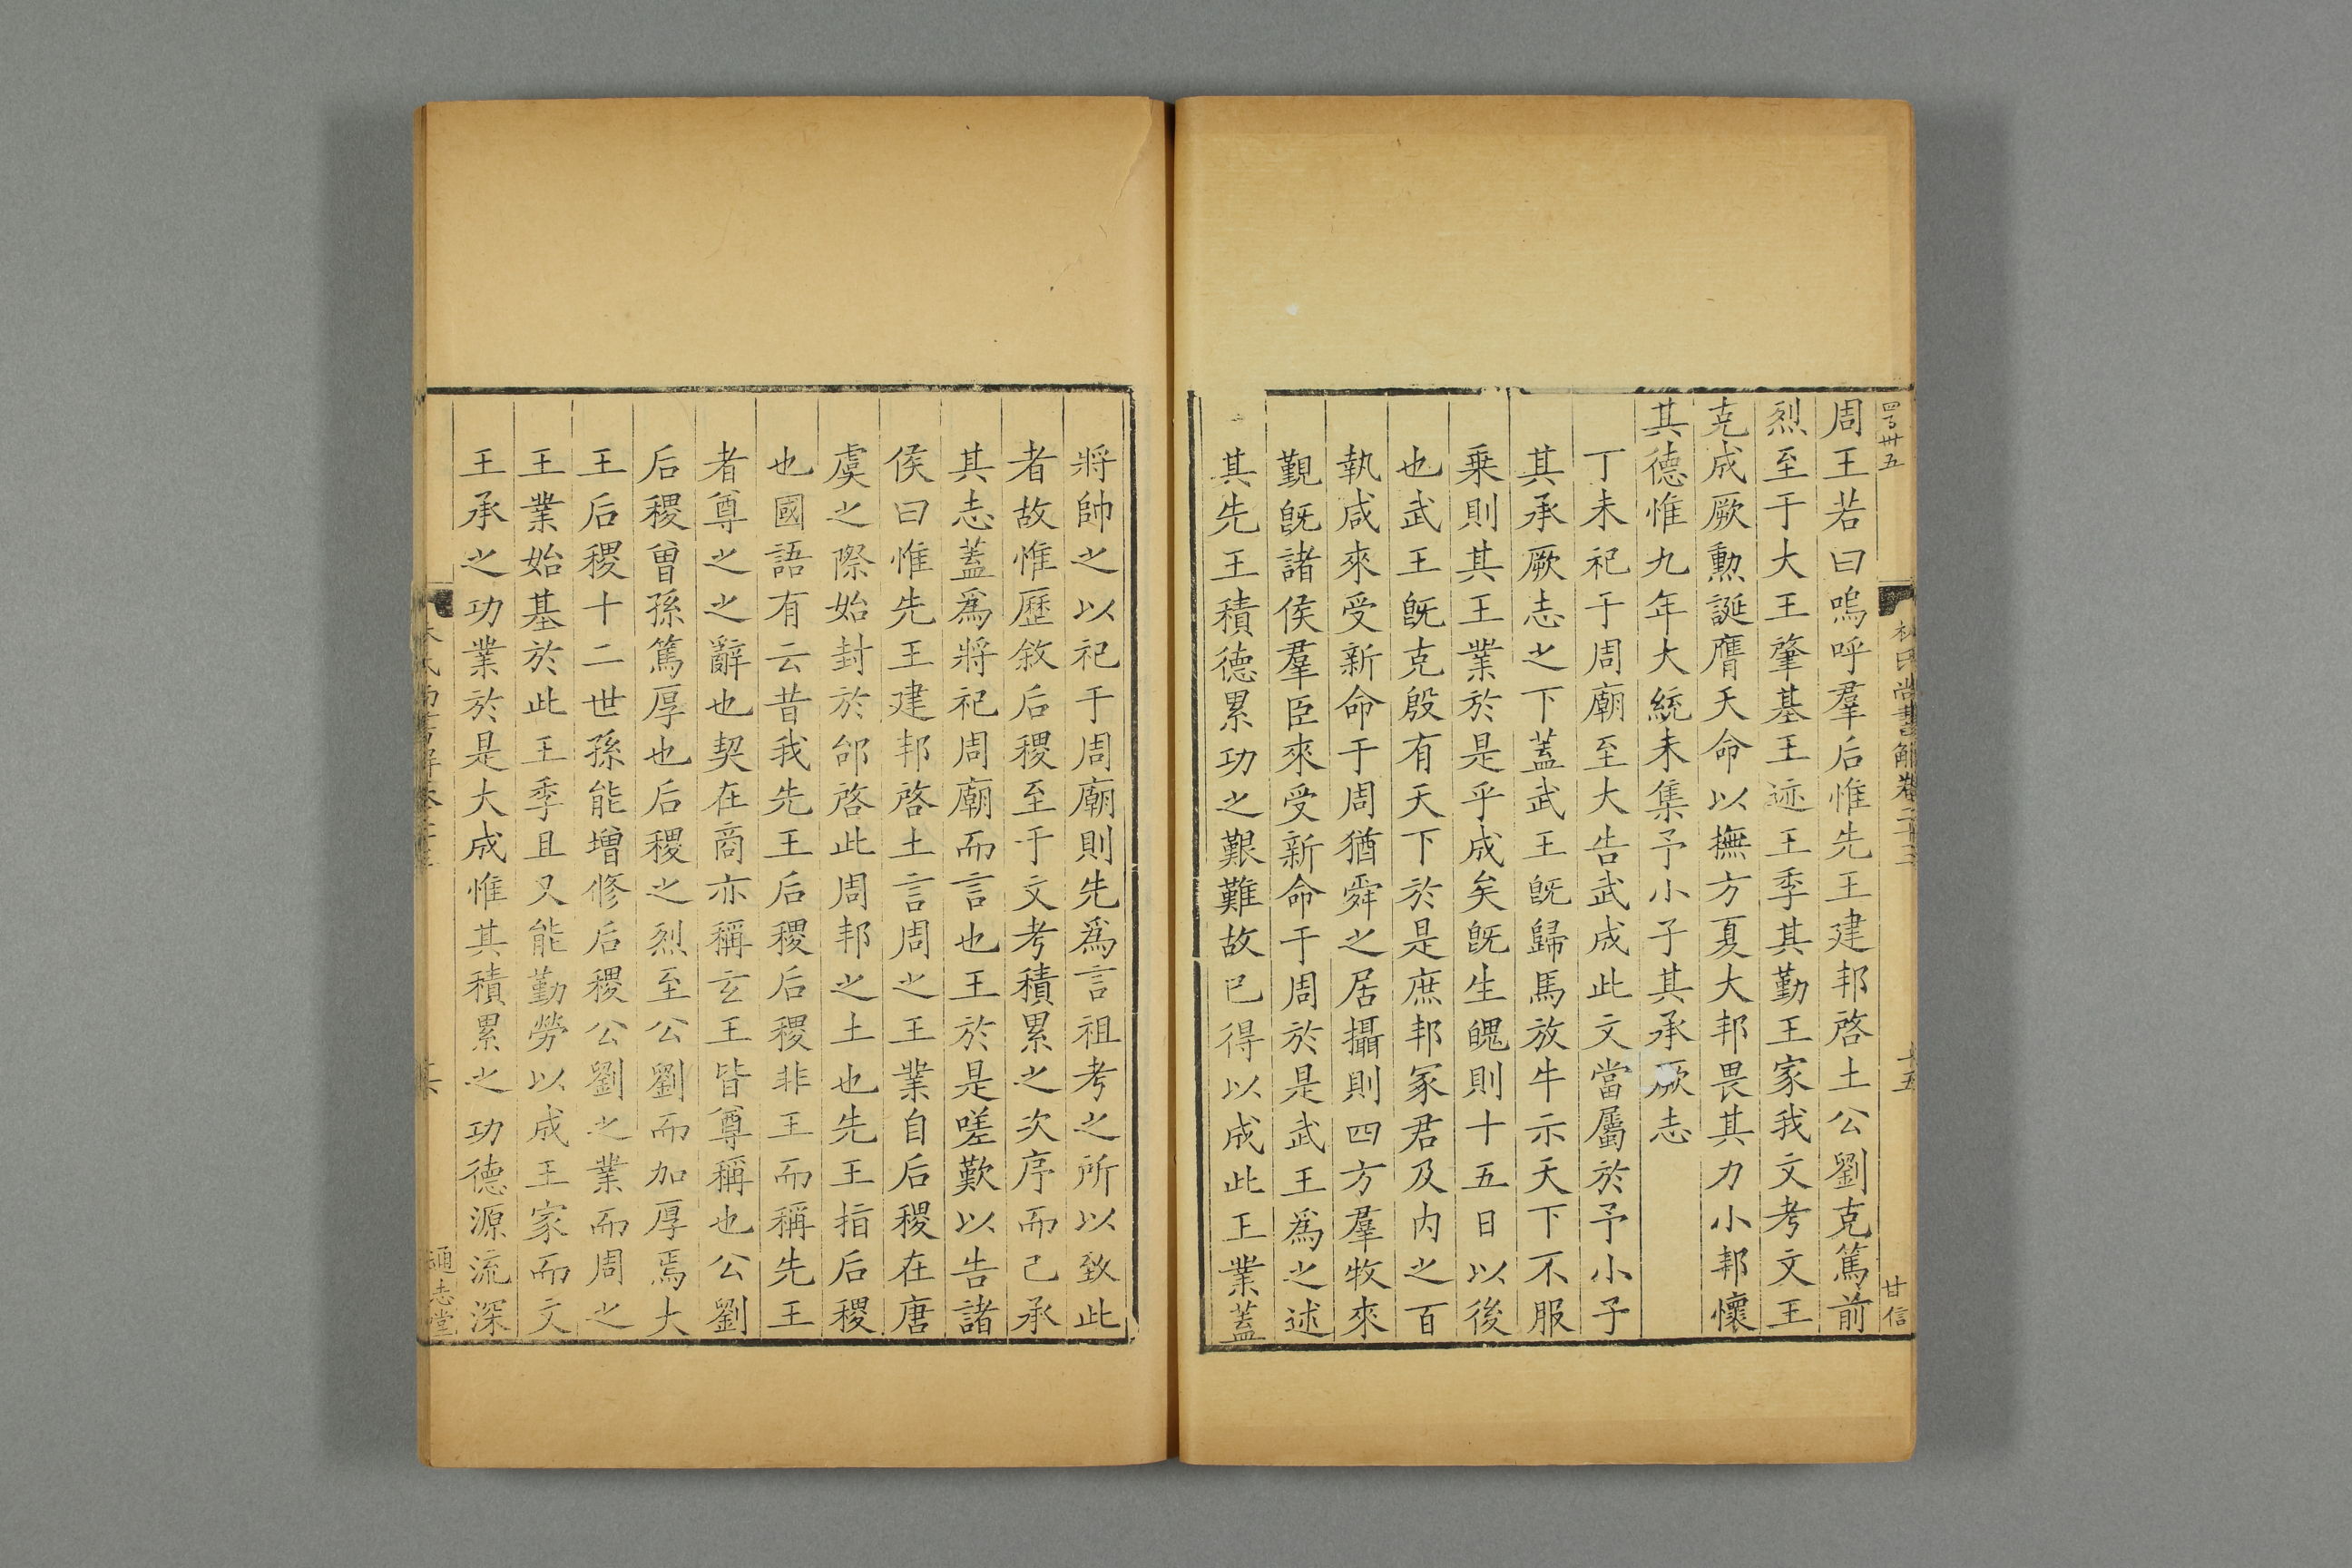 周王若曰嗚呼羣后惟先王建邦啓土公劉克篤前
烈至于大王肇基王迹王季其勤王家我文考文王
克成厥勲誕膺天命以撫方夏大邦畏其力小邦懷
其德惟九年大統未集予小子其承厥志
丁未祀于周廟至大告武成此文當屬於予小子
其承厥志之下蓋武王旣歸馬放牛示天下不服
乗則其王業於是乎成矣旣生魄則十五日以後
也武王旣克殷有天下於是庶邦冢君及内之百
執咸來受新命于周猶舜之居攝則四方羣牧來
覲旣諸侯羣臣來受新命于周於是武王爲之述
其先王積德累功之艱難故已得以成此王業蓋
將帥之以祀于周廟則先爲言祖考之所以致此
者故惟歷敘后稷至于文考積累之次序而已承
其志蓋爲將祀周廟而言也王於是嗟歎以告諸
侯曰惟先王建邦啓土言周之王業自后稷在唐
虞之際始封於邰啓此周邦之土也先王指后稷
也國語有云昔我先王后稷后稷非王而稱先王
者尊之之辭也契在商亦稱玄王皆尊稱也公劉
后稷曾孫篤厚也后稷之烈至公劉而加厚焉大
王后稷十二世孫能增修后稷公劉之業而周之
王業始基於此王季且又能勤勞以成王家而文
王承之功業於是大成惟其積累之功德源流深
通志堂